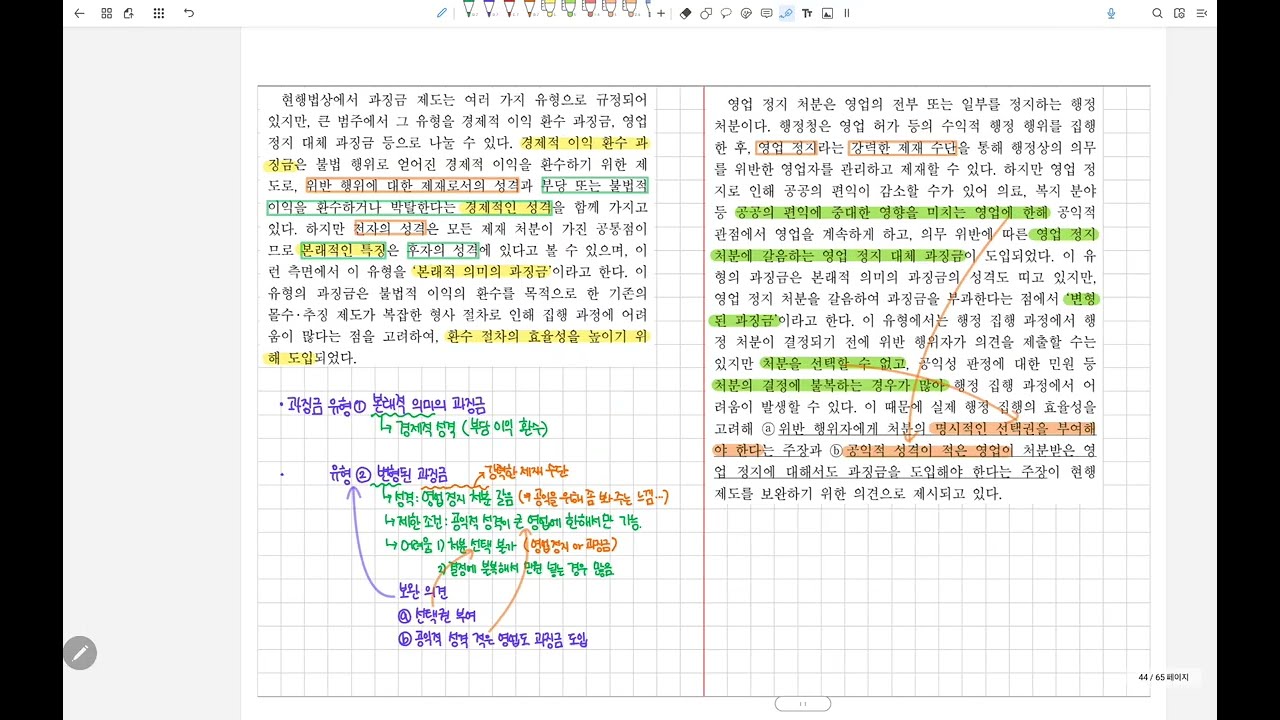 현행법상에서 과징금 제도는 여러 가지 유형으로 규정되어
있지만, 큰 범주에서 그 유형을 경제적 이익 환수 과징금, 영업
정지 대체 과징금 등으로 나눌 수 있다. 경제적 이익 환수 과
징금은 불법 행위로 얻어진 경제적 이익을 환수하기 위한 제
도로, 위반 행위에 대한 제재로서의 성격과 부당 또는 불법적
이익을 환수하거나 박탈한다는 경제적인 성격을 함께 가지고
있다. 하지만 전자의 성격은 모든 제재 처분이 가진 공통점이
므로 본래적인 특징은 후자의 성격에 있다고 볼 수 있으며, 이
런 측면에서 이 유형을 '본래적 의미의 과징금'이라고 한다. 이
유형의 과징금은 불법적 이익의 환수를 목적으로 한 기존의
몰수·추징 제도가 복잡한 형사 절차로 인해 집행 과정에 어려
움이 많다는 점을 고려하여, 환수 절차의 효율성을 높이기 위
해 도입되었다.
• 과징금 유형① 본래적 의미의 과징금
↳ 경제적 성격 (부당 이익 환수)
• 유형② 변형된 과징금
강력한 제재 수단
↳ 성격: 영업 정지 처분 갈음 (공익을 위해 좀 봐 주는 느낌…)
↳ 제한 조건: 공익적 성격이 큰 영업에 한해서만 가능.
↳ 어려움 1) 처분 선택 불가 (영업정지 or 과징금)
2) 결정에 불복해서 민원 넣는 경우 많음
보완 의견
ⓐ 선택권 부여
ⓑ 공익적 성격 적은 영업도 과징금 도입
영업 정지 처분은 영업의 전부 또는 일부를 정지하는 행정
처분이다. 행정청은 영업 허가 등의 수익적 행정 행위를 집행
한 후, 영업 정지라는 강력한 제재 수단을 통해 행정상의 의무
를 위반한 영업자를 관리하고 제재할 수 있다. 하지만 영업 정
지로 인해 공공의 편익이 감소할 수가 있어 의료, 복지 분야
등 공공의 편익에 중대한 영향을 미치는 영업에 한해 공익적
관점에서 영업을 계속하게 하고, 의무 위반에 따른 영업 정지
처분에 갈음하는 영업 정지 대체 과징금이 도입되었다. 이 유
형의 과징금은 본래적 의미의 과징금의 성격도 띠고 있지만,
영업 정지 처분을 갈음하여 과징금을 부과한다는 점에서 '변형
된 과징금'이라고 한다. 이 유형에서는 행정 집행 과정에서 행
정 처분이 결정되기 전에 위반 행위자가 의견을 제출할 수는
있지만 처분을 선택할 수 없고, 공익성 판정에 대한 민원 등
처분의 결정에 불복하는 경우가 많아 행정 집행 과정에서 어
려움이 발생할 수 있다. 이 때문에 실제 행정 집행의 효율성을
고려해 ⓐ위반 행위자에게 처분의 명시적인 선택권을 부여해
야 한다는 주장과 ⓑ공익적 성격이 적은 영업이 처분받은 영
업 정지에 대해서도 과징금을 도입해야 한다는 주장이 현행
제도를 보완하기 위한 의견으로 제시되고 있다.
44 / 65 페이지